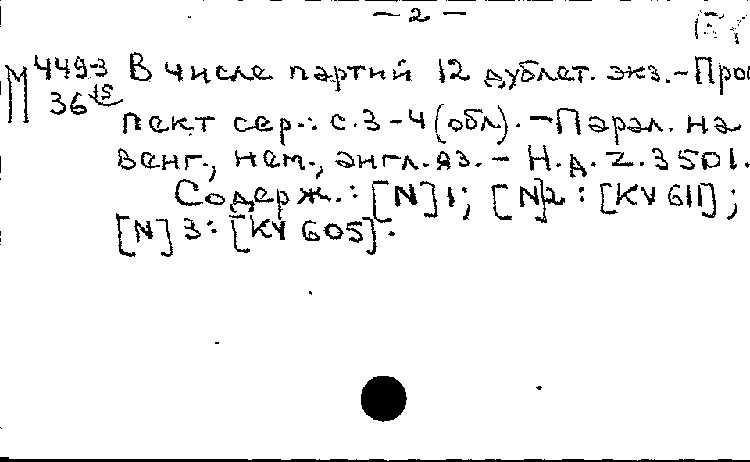 — 2 —
М 4493 В числе партий 12 дублет. экз. – Прос
36
пект сер.: с. 3 – 4 (обл). – Парал. на
венг., нем., англ. яз. – Н. д. Z. 3501.
Содерж.: [N] 1; [N] 2 : [KV 611];
[N] 3 : [KV 605].